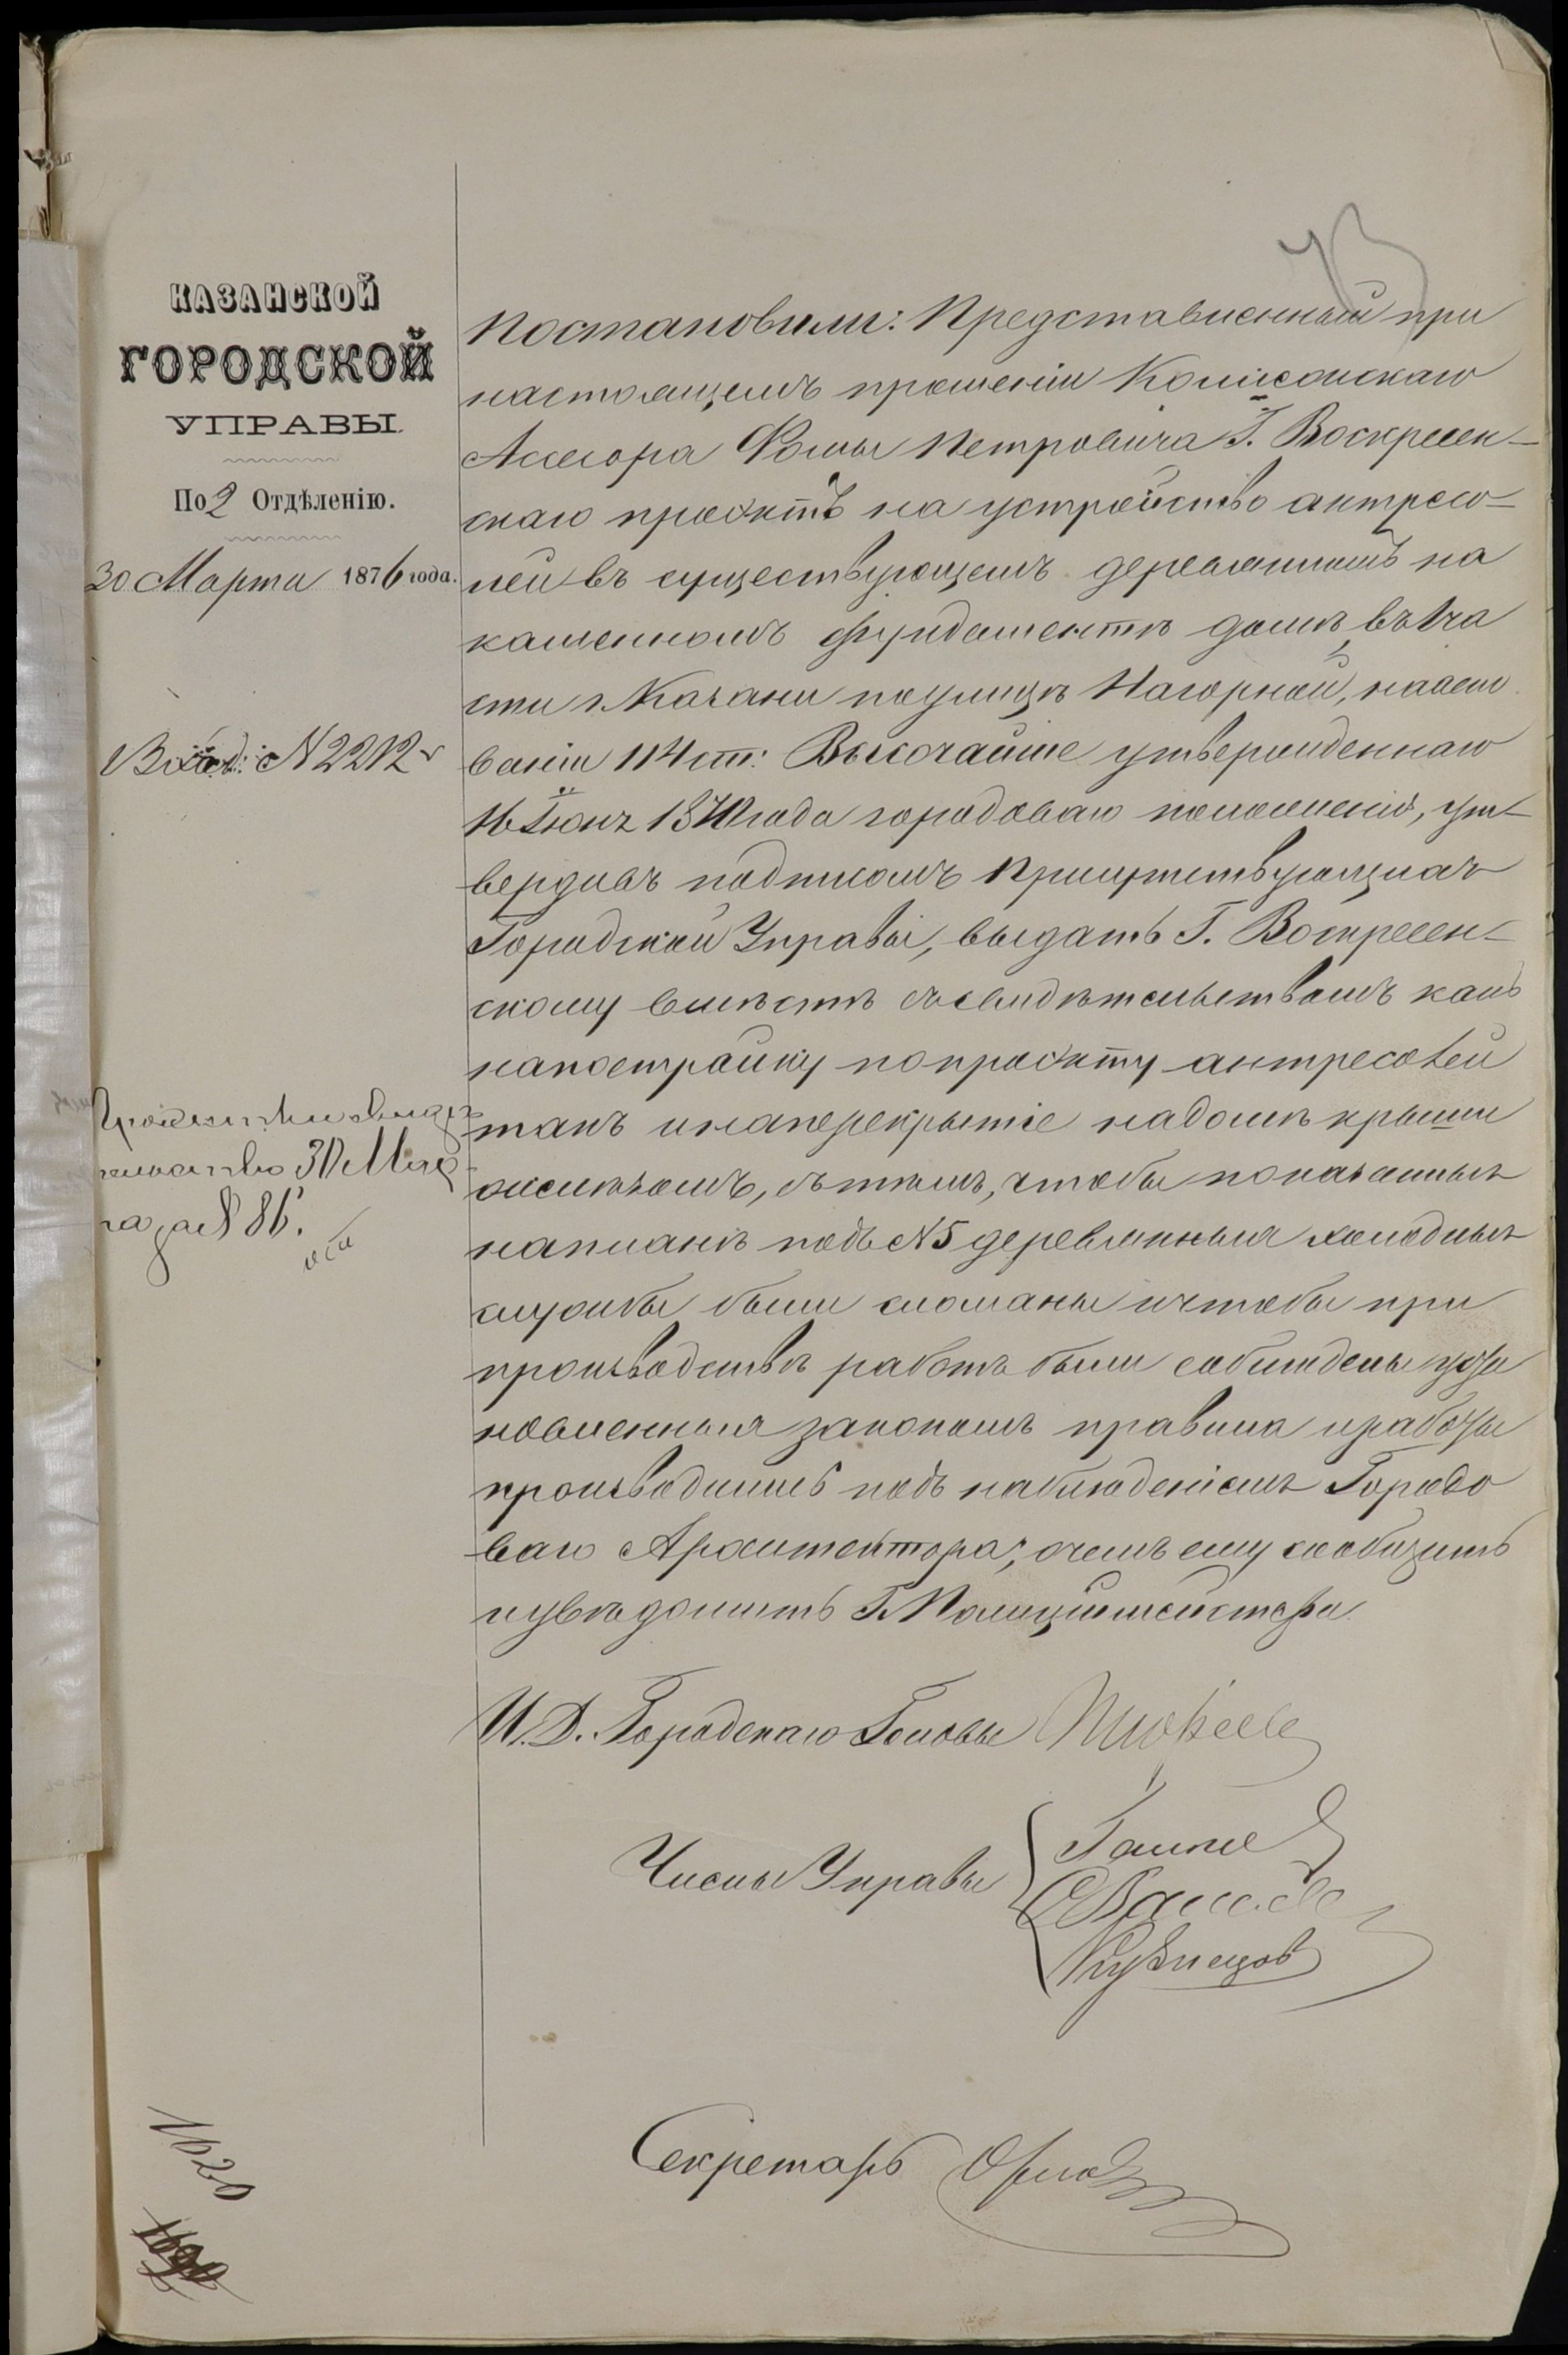 КАЗАНСКОЙ
ГОРОДСКОЙ
УПРАВЫ.
По 2 Отдѣленію.
30 Марта 1876 года.
Вход: № 2212
свидѣ
тельство 30 Мар
та за № 86.
Постановили: Представленный при
настоящемъ прошеніи Колежскаго
Ассесора Фомы Петровича Г. Воскресен-
скаго проэктъ на устройство антресо-
лей въ существующемъ деревянномъ на
каменномъ фундаментѣ домѣ, въ 1 ча
сти г. Казани по улицѣ Нагорной, на осно
ваніи 114 ст: Высочайше утвержденнаго
16 Іюня 1870 года городоваго положенія, ут-
вердивъ подписомъ Присутствующихъ
Городской Управы, выдать Г. Воскресен-
скому вмѣстѣ съ свидѣтельствомъ какъ
на постройку по проэкту антресолей
такъ и на перекрытіе на домѣ крыши
желѣзомъ, съ тѣмъ, чтобы показанныя
на планѣ подъ № 5 деревянныя холодныя
службы были сломаны и чтобы при
производствѣ работъ были соблюдены уста
новленныя закономъ правила и работы
производились подъ наблюденіемъ Городо
ваго Архитектора; о чемъ ему сообщить
и увѣдомить Г. Полиціймейстера.
И. Д. Городскаго Головы
Члены Управы
Кузнецов
Секретарь
1020